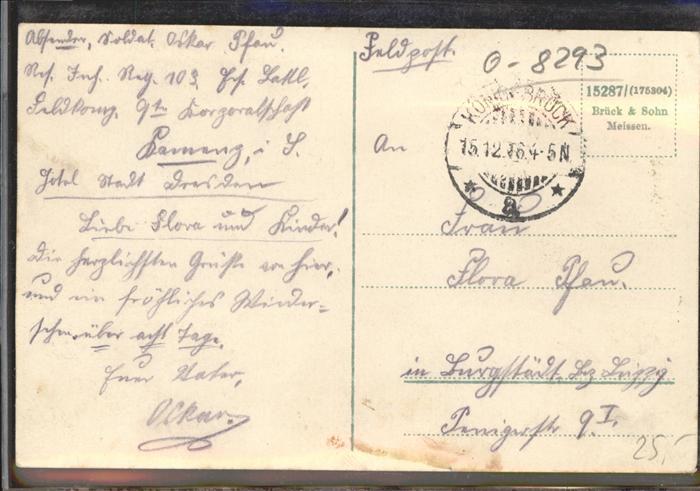 Absender, Soldat. Oskar Pfau.
Res. Inf. Reg. 103, Ers. Batl.,
Feldkomp. 9te Korporalschaft
Kamenz, i. S.
Hotel Stadt Dresden
Liebe Flora und Kinder!
Die herzlichsten Grüße von hier,
und ein fröhliches Wieder=
sehen über acht Tage.
Euer Vater,
Oskar.
Feldpost.
O-8293
15287/(175304)
Brück & Sohn
Meissen.
KÖNIGSBRÜCK
15.12.16.4-5N
a
An
Frau
Flora Pfau.
in Burgstädt, Bz Leipzig
Penigerstr 9.I.
25,-